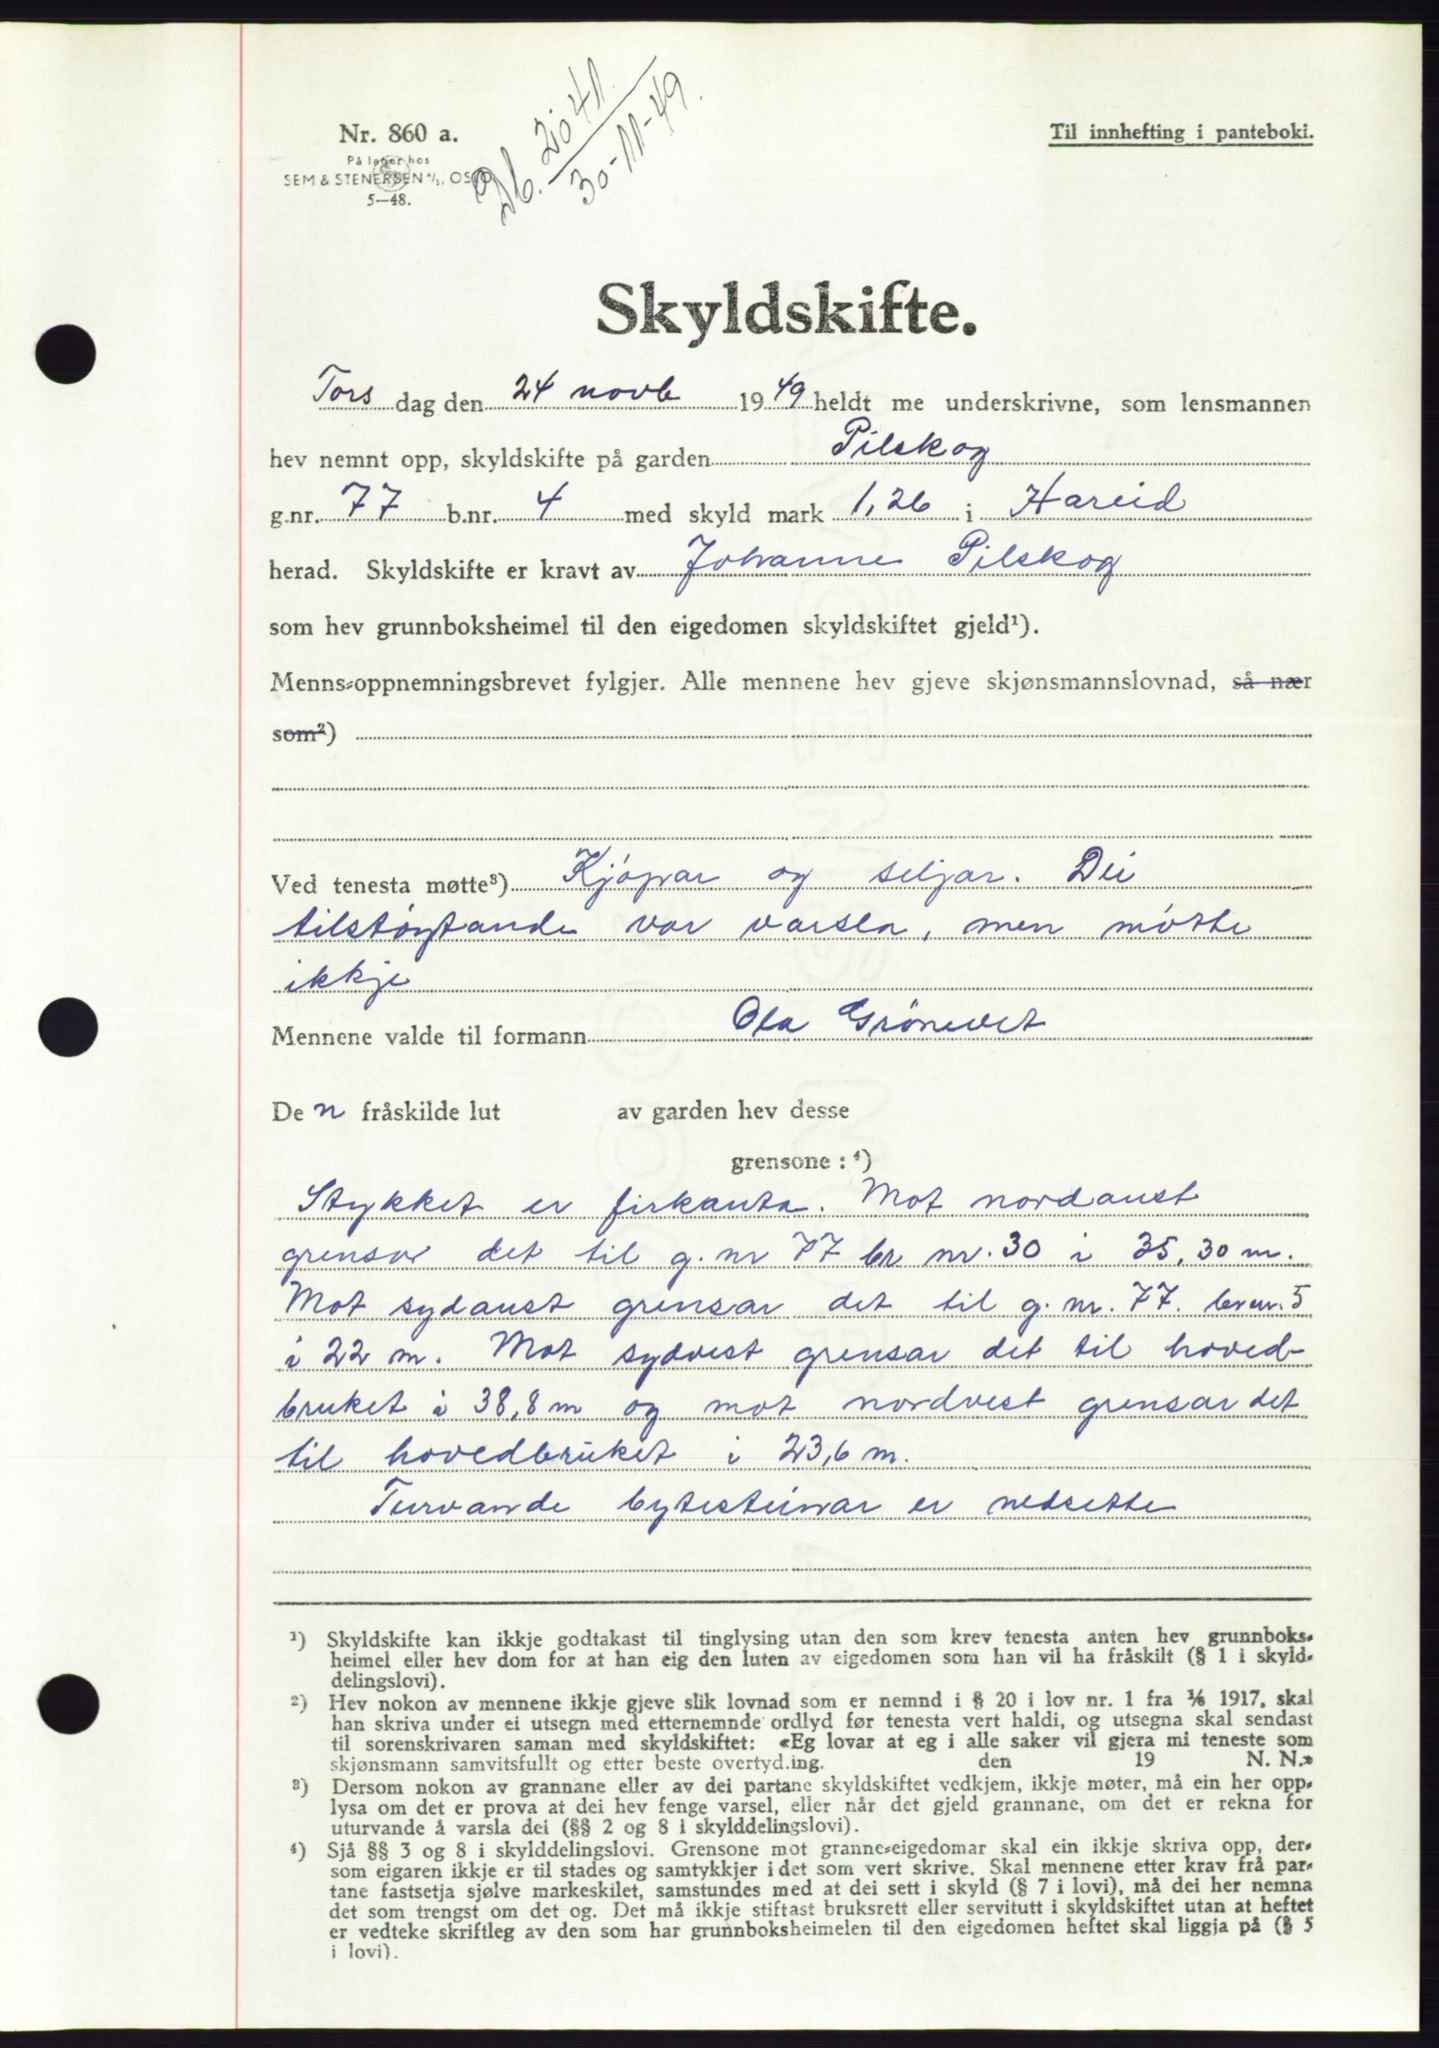 Nr. 860 a.
På lager hos
SEM & STENERSEN A/S, OSLO
5—48.
Db. 2041.
30-11-49.
Til innhefting i panteboki.
Skyldskifte.
Tors dag den 24 novb 1949 heldt me underskrivne, som lensmannen
hev nemnt opp, skyldskifte på garden Pilskog
g.nr. 77 b.nr. 4 med skyld mark 1,26 i Hareid
herad. Skyldskifte er kravt av Johanne Pilskog
som hev grunnboksheimel til den eigedomen skyldskiftet gjeld¹).
Menns-oppnemningsbrevet fylgjer. Alle mennene hev gjeve skjønsmannslovnad, så nær
som²)
Ved tenesta møtte³) Kjøpar og seljar. Dei
tilstøytande var varsla, men møtte
ikkje
Mennene valde til formann Ola Grønevet
De n fråskilde lut av garden hev desse
grensone : ⁴)
Stykket er firkanta. Mot nordaust
grensar det til g. nr 77 br nr. 30 i 35,30 m.
Mot sydaust grensar det til g. nr. 77. br nr. 5
i 22 m. Mot sydvest grensar det til hoved-
bruket i 38,8 m og mot nordvest grensar det
til hovedbruket i 23,6 m.
Turvande bytesteinar er nedsette
¹) Skyldskifte kan ikkje godtakast til tinglysing utan den som krev tenesta anten hev grunnboks-
heimel eller hev dom for at han eig den luten av eigedomen som han vil ha fråskilt (§ 1 i skyld-
delingslovi).
²) Hev nokon av mennene ikkje gjeve slik lovnad som er nemnd i § 20 i lov nr. 1 fra 1/6 1917, skal
han skriva under ei utsegn med etternemnde ordlyd før tenesta vert haldi, og utsegna skal sendast
til sorenskrivaren saman med skyldskiftet: «Eg lovar at eg i alle saker vil gjera mi teneste som
skjønsmann samvitsfullt og etter beste overtyd.ing. den 19 N. N.»
³) Dersom nokon av grannane eller av dei partane skyldskiftet vedkjem, ikkje møter, må ein her opp-
lysa om det er prova at dei hev fenge varsel, eller når det gjeld grannane, om det er rekna for
uturvande å varsla dei (§§ 2 og 8 i skylddelingslovi).
⁴) Sjå §§ 3 og 8 i skylddelingslovi. Grensone mot granne-eigedomar skal ein ikkje skriva opp, der-
som eigaren ikkje er til stades og samtykkjer i det som vert skrive. Skal mennene etter krav frå par-
tane fastsetja sjølve markeskilet, samstundes med at dei sett i skyld (§ 7 i lovi), må dei her nemna
det som trengst om det og. Det må ikkje stiftast bruksrett eller servitutt i skyldskiftet utan at heftet
er vedteke skriftleg av den som har grunnboksheimelen til den eigedomen heftet skal liggja på (§ 5
i lovi).